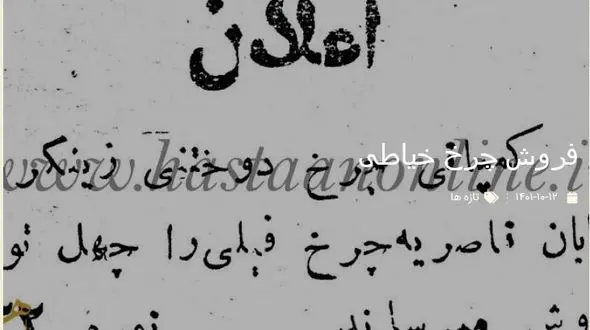 اعلان
فروش چرخ خیاطی
کمپانی چرخ دوختنی زینکر
www.hastaanonline.i
۱۴۰۱-۱۰-۱۲ تازه ها
ابان ناصریه چرخ فیلی را چهل تو